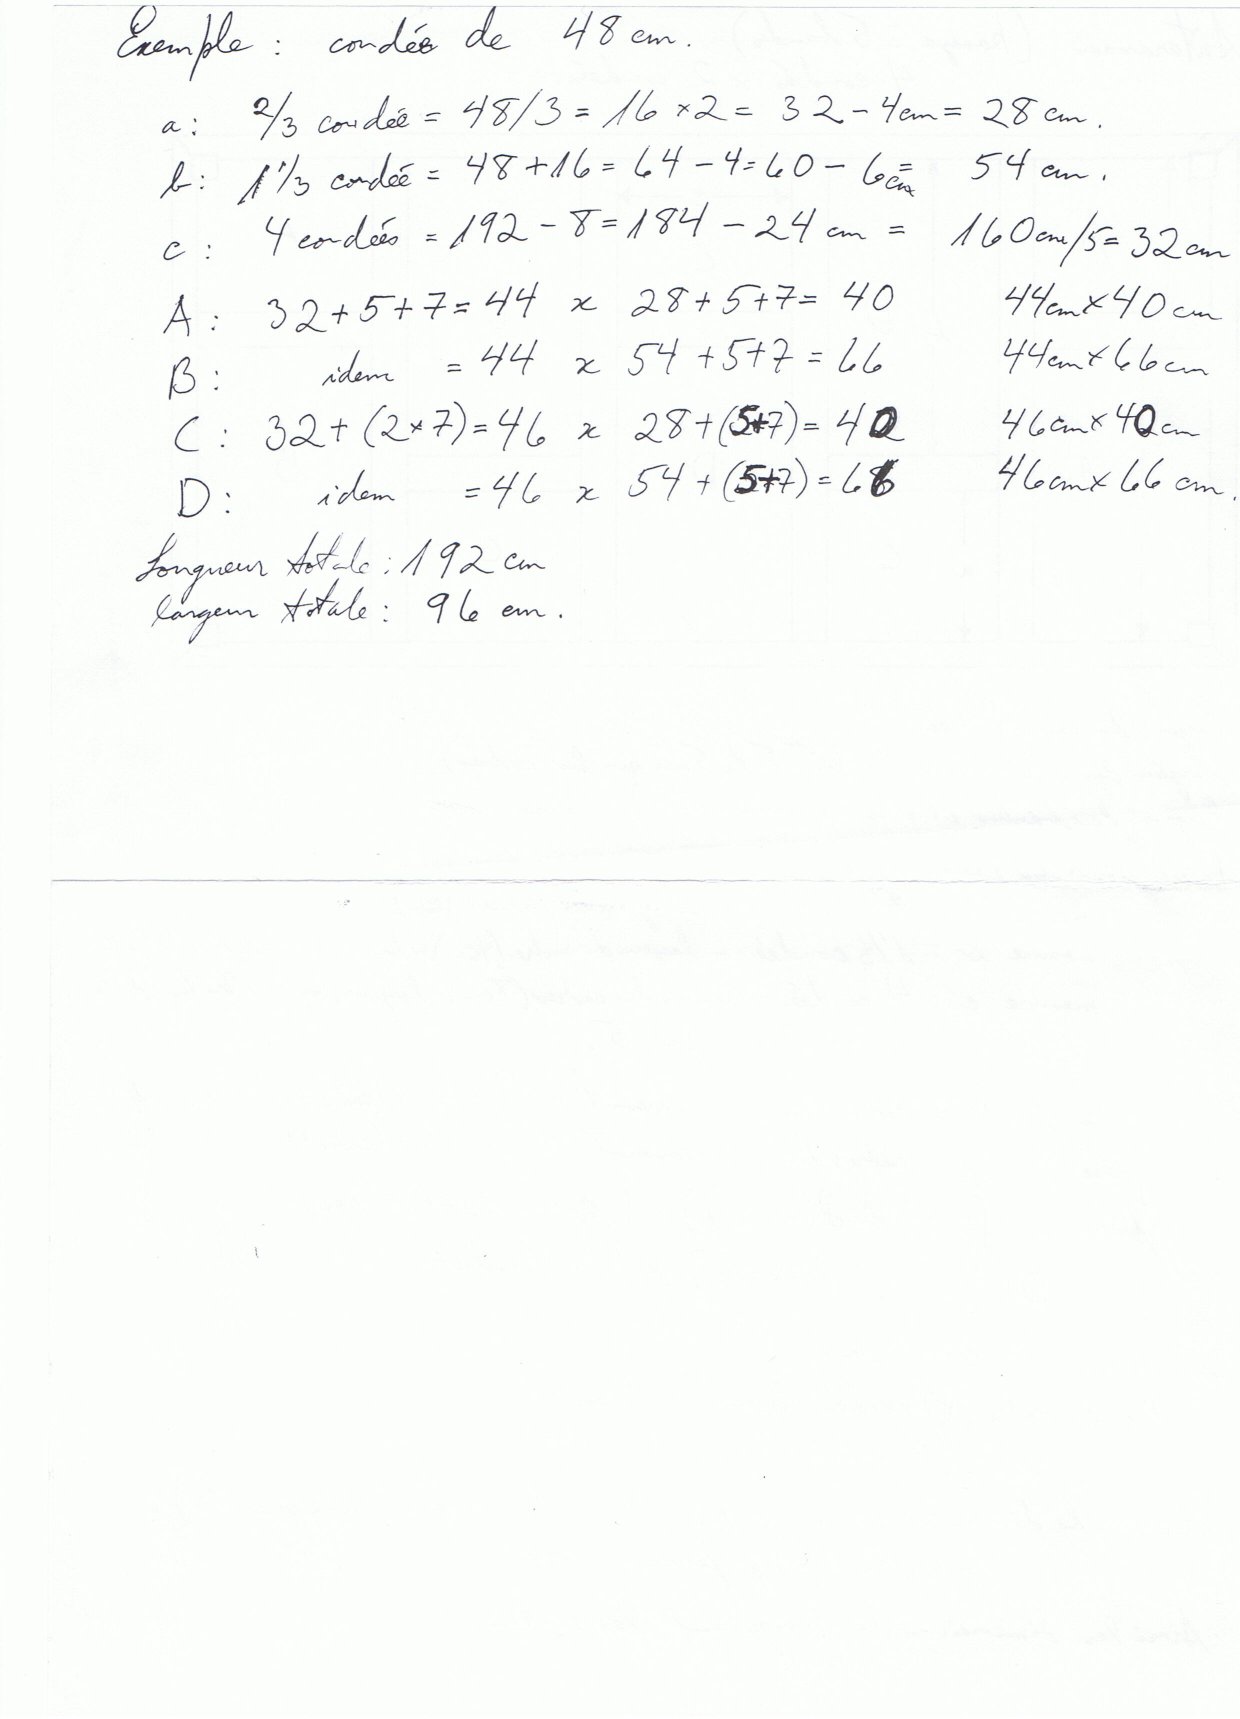 Exemple : coudée de 48 cm.
a : 2/3 coudée = 48/3 = 16 x 2 = 32 - 4cm = 28 cm.
b : 1 1/3 coudée = 48 + 16 = 64 - 4 = 60 - 6cm = 54 cm.
c : 4 coudées = 192 - 8 = 184 - 24 cm = 160cm/5 = 32cm
A : 32 + 5 + 7 = 44 x 28 + 5 + 7 = 40 44cm x 40 cm
B : idem = 44 x 54 + 5 + 7 = 66 44cm x 66cm
C : 32 + (2 x 7) = 46 x 28 + (5+7) = 40 46cm x 40cm
D : idem = 46 x 54 + (5+7) = 66 46cm x 66 cm.
Longueur totale : 192 cm
largeur totale : 96 cm.